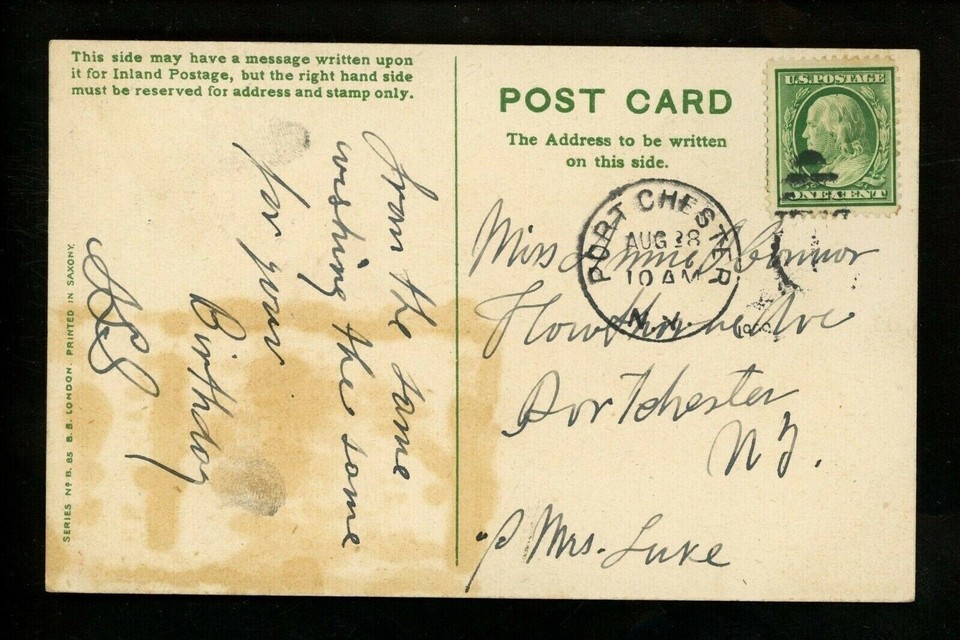 This side may have a message written upon
it for Inland Postage, but the right hand side
must be reserved for address and stamp only.
from the same
wishing the same
for your
Birthday
SERIES Nº B. 85 B.B. LONDON. PRINTED IN SAXONY.
POST CARD
The Address to be written
on this side.
U.S. POSTAGE
ONE CENT
PORT CHESTER
AUG 28
10 AM
N.Y.
Miss Connor
Ave
Portchester
N.Y.
Mrs. Luke